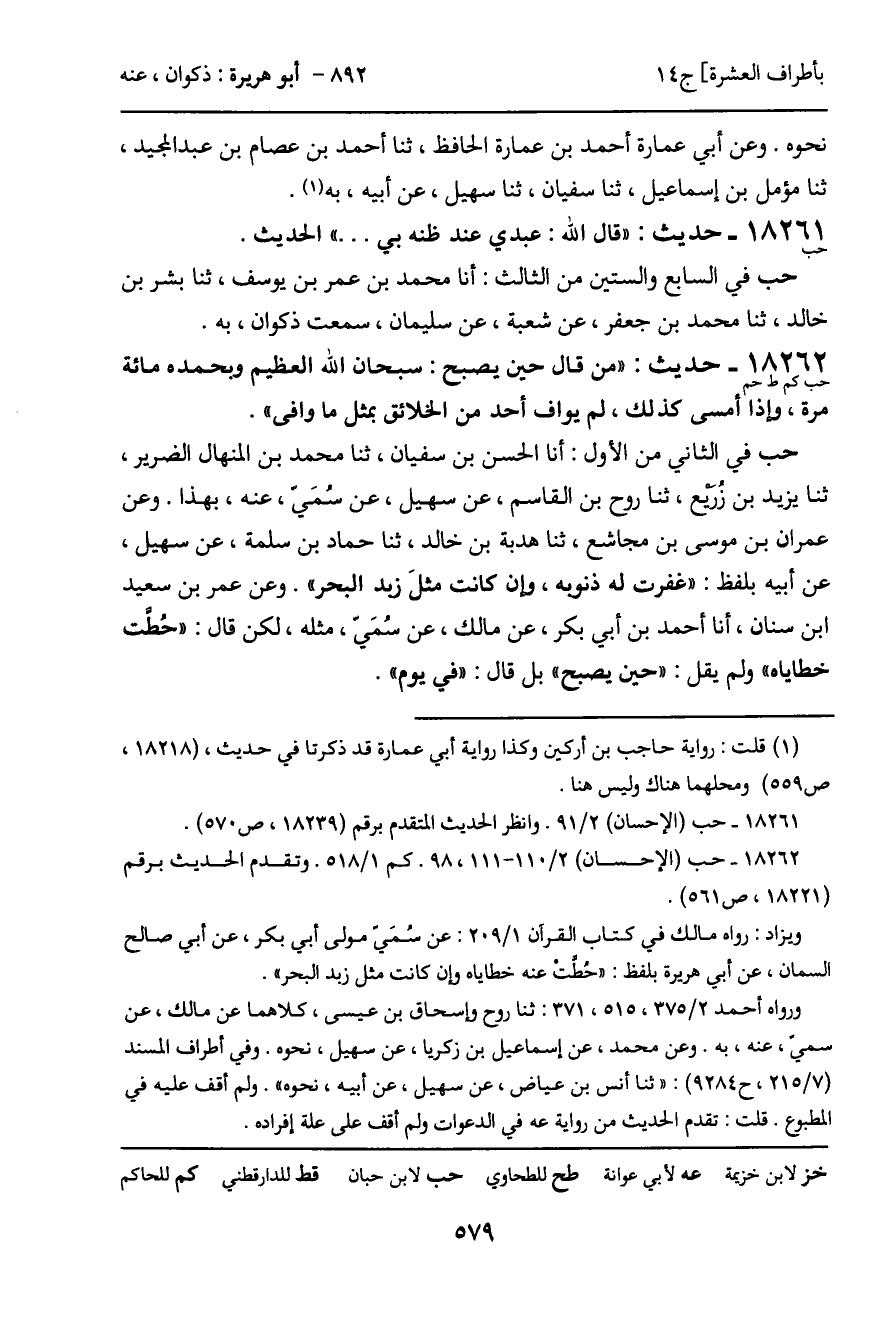 بأطراف العشرة] ج١٤ ٨٩٢ - أبو هريرة : ذكوان ، عنه
نحوه . وعن أبي عمارة أحمد بن عمارة الحافظ ، ثنا أحمد بن عصام بن عبدالمجيد ،
ثنا مؤمل بن إسماعيل ، ثنا سفيان ، ثنا سهيل ، عن أبيه ، به(١) .
١٨٢٦١ ـ حديث : «قال الله : عبدي عند ظنه بي ...» الحديث .
حب
حب في السابع والستين من الثالث : أنا محمد بن عمر بن يوسف ، ثنا بشر بن
خالد ، ثنا محمد بن جعفر ، عن شعبة ، عن سليمان ، سمعت ذكوان ، به .
١٨٢٦٢ ـ حديث : «من قال حين يصبح : سبحان الله العظيم وبحمده مائة
حب كم ط حم
مرة ، وإذا أمسى كذلك ، لم يواف أحد من الخلائق بمثل ما وافى» .
حب في الثاني من الأول : أنا الحسن بن سفيان ، ثنا محمد بن المنهال الضرير ،
ثنا يزيد بن زُرَيْع ، ثنا روح بن القاسم ، عن سهيل ، عن سُمَيّ ، عنه ، بهذا . وعن
عمران بن موسى بن مجاشع ، ثنا هدبة بن خالد ، ثنا حماد بن سلمة ، عن سهيل ،
عن أبيه بلفظ : «غفرت له ذنوبه ، وإن كانت مثلَ زبد البحر» . وعن عمر بن سعيد
ابن سنان ، أنا أحمد بن أبي بكر ، عن مالك ، عن سُمَيّ ، مثله ، لكن قال : «حُطَّت
خطاياه» ولم يقل : «حين يصبح» بل قال : «في يوم» .
(١) قلت : رواية حاجب بن أركين وكذا رواية أبي عمارة قد ذكرتا في حديث ، (١٨٢١٨ ،
ص٥٥٩) ومحلهما هناك وليس هنا .
١٨٢٦١ ـ حب (الإحسان) ٩١/٢ . وانظر الحديث المتقدم برقم (١٨٢٣٩ ، ص٥٧٠) .
١٨٢٦٢ ـ حب (الإحسان) ١١٠/٢-١١١ ، ٩٨ . كم ٥١٨/١ . وتقدم الحديث برقم
(١٨٢٢١ ، ص٥٦١) .
ويزاد : رواه مالك في كتاب القرآن ٢٠٩/١ : عن سُمَيّ مولى أبي بكر ، عن أبي صالح
السمان ، عن أبي هريرة بلفظ : «حُطَّتْ عنه خطاياه وإن كانت مثل زبد البحر» .
ورواه أحمد ٣٧٥/٢ ، ٥١٥ ، ٣٧١ : ثنا روح وإسحاق بن عيسى ، كلاهما عن مالك ، عن
سميّ ، عنه ، به . وعن محمد ، عن إسماعيل بن زكريا ، عن سهيل ، نحوه . وفي أطراف المسند
(٢١٥/٧ ، ح٩٢٨٤) : « ثنا أنس بن عياض ، عن سهيل ، عن أبيه ، نحوه» . ولم أقف عليه في
المطبوع . قلت : تقدم الحديث من رواية عه في الدعوات ولم أقف على علة إفراده .
خز لابن خزيمة عه لأبي عوانة طح للطحاوي حب لابن حبان قط للدارقطني كم للحاكم
٥٧٩